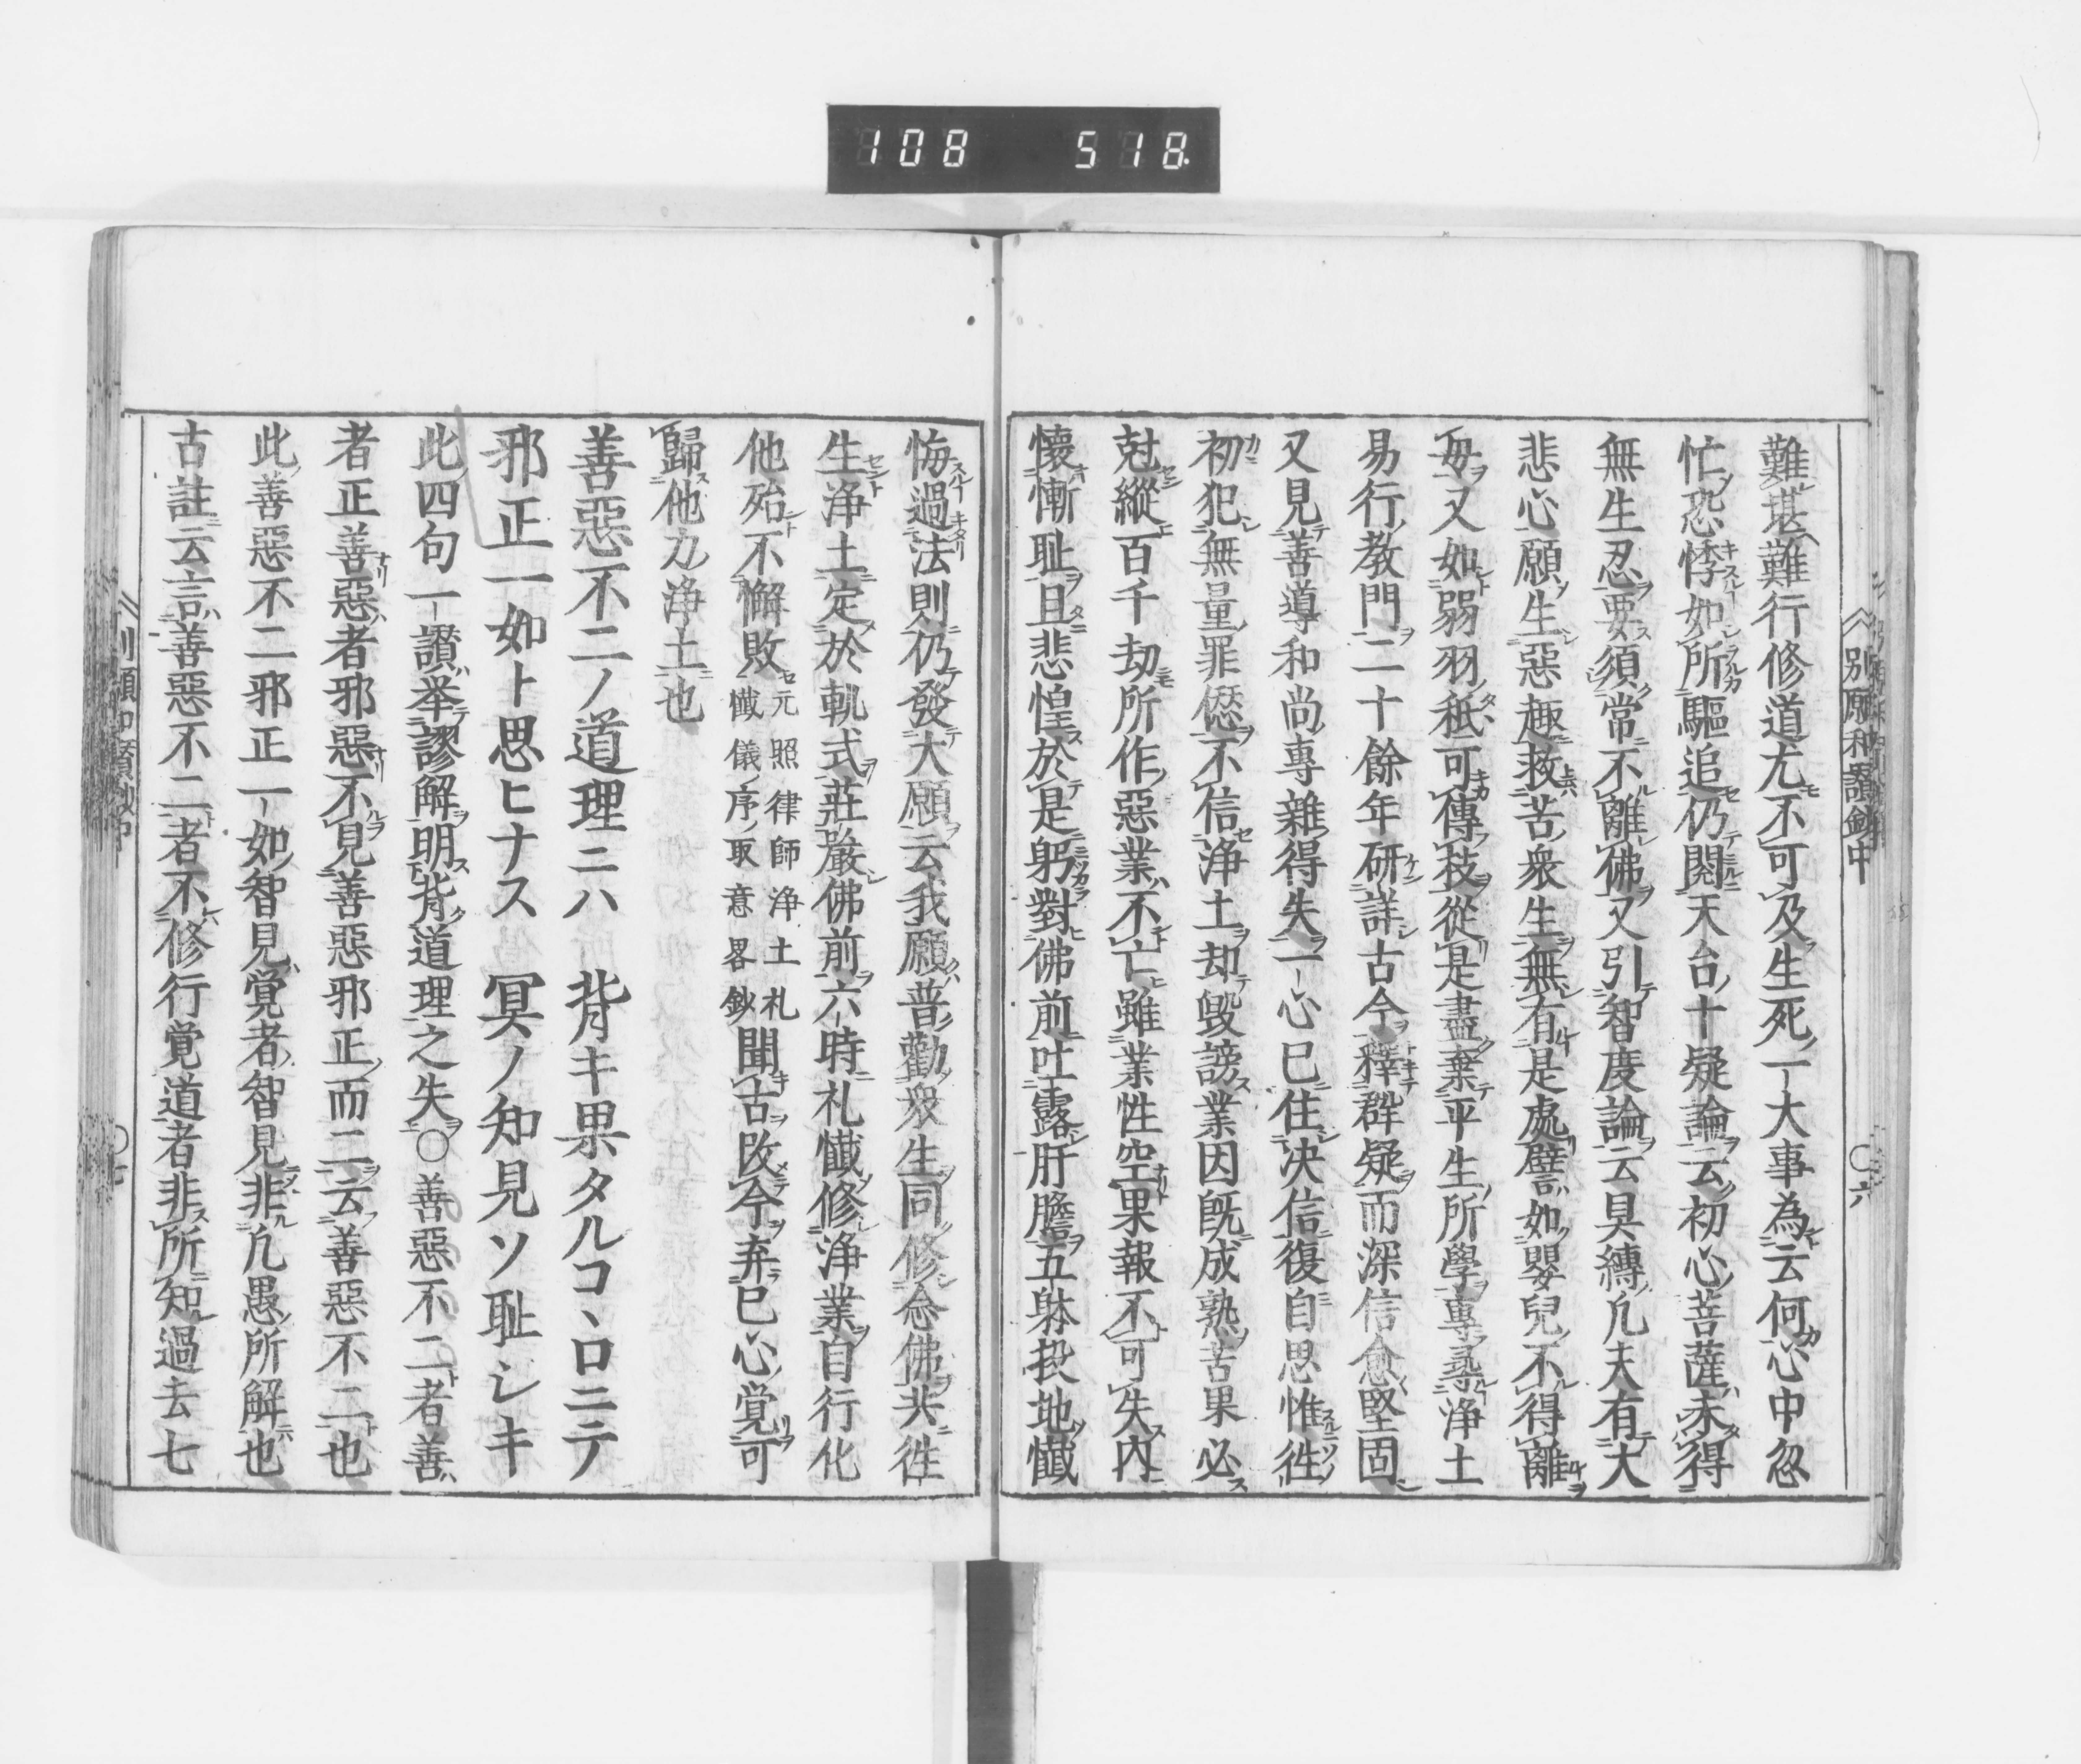 108 518.
別願和讃鈔中 〇六
難堪難行修道尤不可及生死一大事為云何心中忽
忙恐悸如所驅追仍閲天台十疑論云初心菩薩未得
無生忍要須常不離佛又引智度論云具縛凡夫有大
悲心願生惡趣救苦衆生無有是處譬如嬰兒不得離
毋又如弱羽秖可傳枝從是盡棄平生所學專尋浄土
易行教門二十餘年研詳古今釋群疑而深信愈堅固
又見善導和尚專雜得失一心已住决信復自思惟徃
初犯無量罪愆不信浄土却毀謗業因既成熟苦果必
尅縱百千劫所作惡業不亡雖業性空果報不可失内
懐慚耻且悲惶於是躬對佛前吐露肝膽五躰投地懺
悔過法則仍發大願云我願普勸衆生同修念佛共徃
生浄土定於軌式莊嚴佛前六時礼懺修浄業自行化
他殆不懈敗元照律師浄土札
懺儀序取意畧鈔聞古改今弃已心覚可
歸他力浄土也
善惡不二ノ道理ニハ 背キ果タルコヽロニテ
邪正一如ト思ヒナス 冥ノ知見ソ耻シキ
此四句一讃举謬解明背道理之失〇善惡不二者善
者正善惡者邪惡不見善惡邪正而二云善惡不二也
此善惡不二邪正一如智見覚者智見非凡愚所解也
古註云言善惡不二者不修行覚道者非所知過去七
〇七